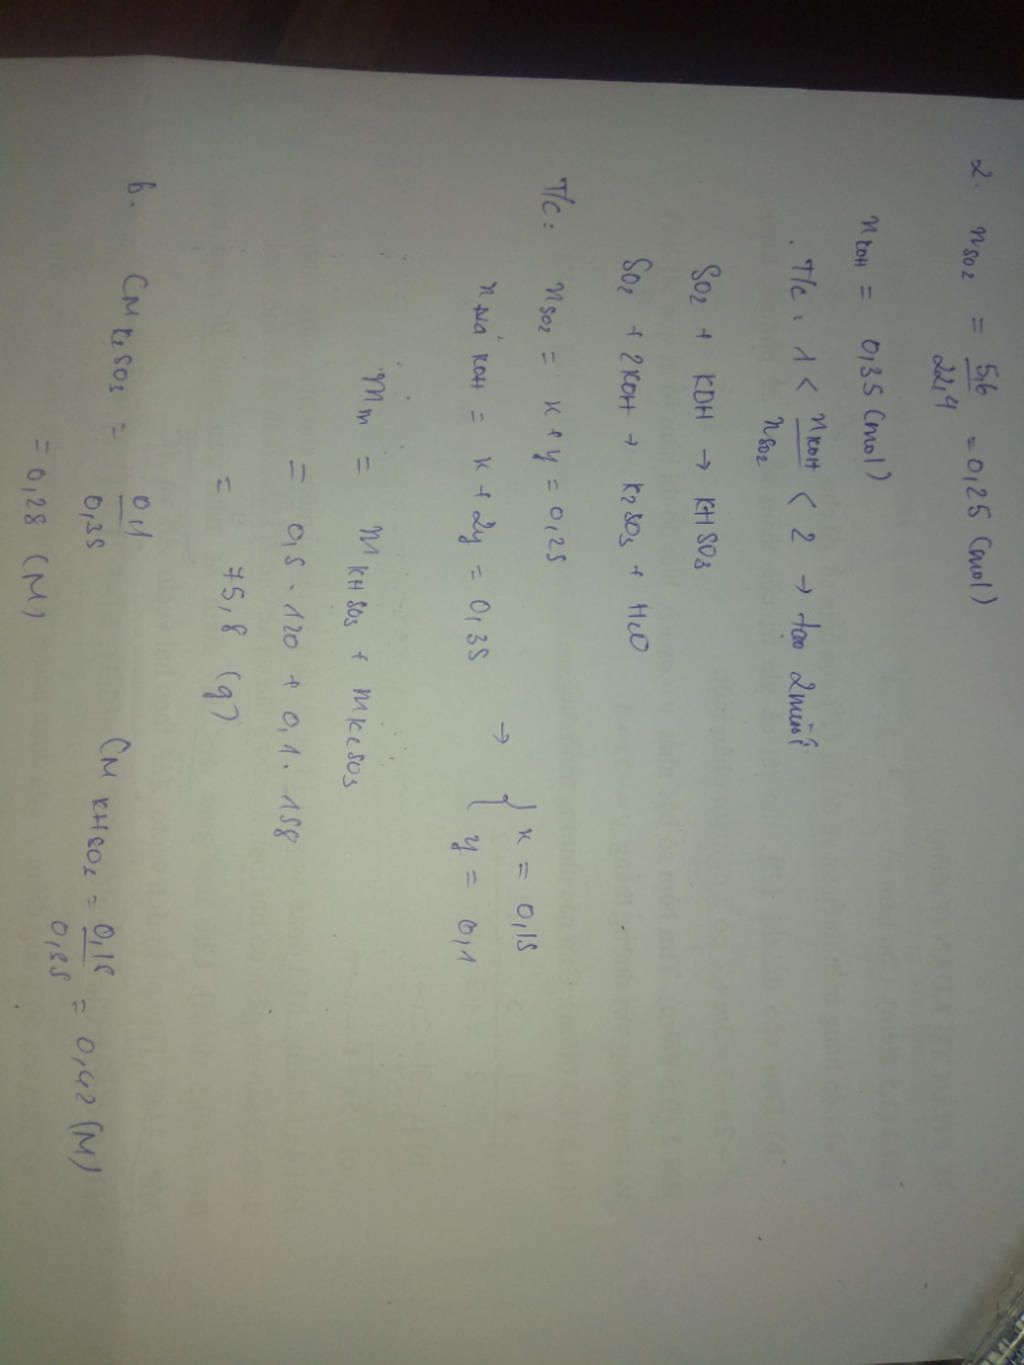 2. n SO2 = 5,6 / 22,4 = 0,25 (mol)
n KOH = 0,35 (mol)
T/c : 1 < n KOH / n SO2 < 2 → tạo 2 muối
SO2 + KOH → KHSO3
SO2 + 2KOH → K2SO3 + H2O
T/c : n SO2 = x + y = 0,25
n KOH = x + 2y = 0,35 → { x = 0,15
y = 0,1
m m = m KHSO3 + m K2SO3
= 0,5 . 120 + 0,1 . 158
= 75,8 (g)
b. CM K2SO3 = 0,1 / 0,35
= 0,28 (M)
CM KHSO3 = 0,15 / 0,35 = 0,42 (M)